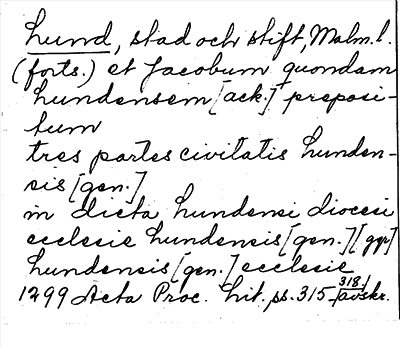 Lund, stad och stift, Malm. l.
(forts.) et Jacobum quondam
Lundensem [ack.] preposi-
tum
tres partes civitatis Lunden-
sis [gen.]
in dicta Lundensi diocesi
ecclesie Lundensis [gen.] [gg r]
Lundensis [gen.] ecclesie
1299 Acta Proc. Lit, ss. 315-318/avskr.